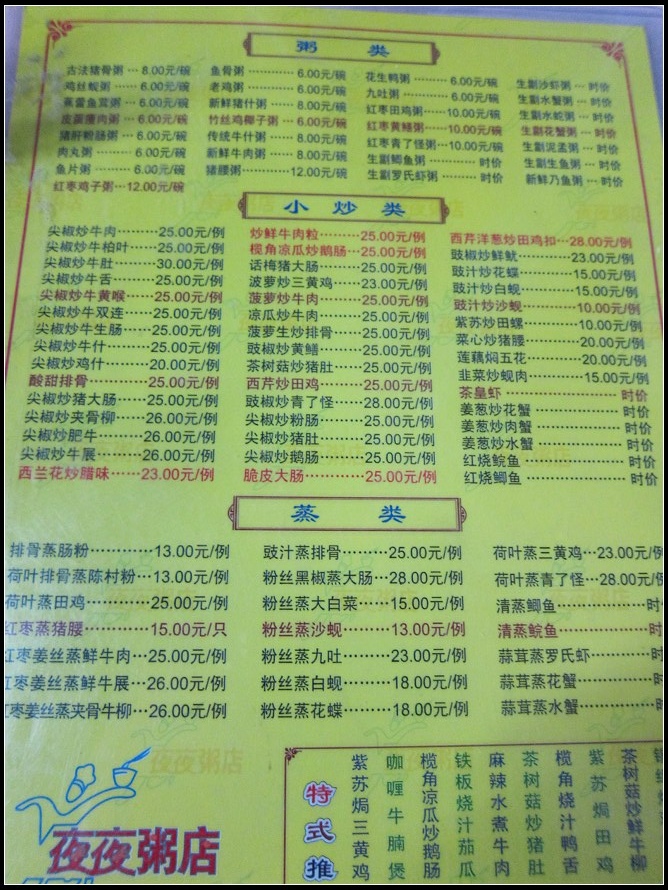 粥 类
古法猪骨粥…8.00元/碗
鸡丝蜆粥…6.00元/碗
燕蕾鱼茸粥…6.00元/碗
皮蛋瘦肉粥…6.00元/碗
猪肝粉肠粥…6.00元/碗
肉丸粥…6.00元/碗
鱼片粥…6.00元/碗
红枣鸡子粥…12.00元/碗
鱼骨粥…6.00元/碗
老鸡粥…6.00元/碗
新鲜猪什粥…8.00元/碗
竹丝鸡椰子粥…6.00元/碗
传统牛什粥…8.00元/碗
新鲜牛肉粥…8.00元/碗
猪腰粥…12.00元/碗
花生鸭粥…6.00元/碗
九吐粥…6.00元/碗
红枣田鸡粥…10.00元/碗
红枣黄鳝粥…10.00元/碗
红枣青了怪粥…10.00元/碗
生劏鲫鱼粥…时价
生劏罗氏虾粥…时价
生劏沙虾粥…时价
生劏水蟹粥…时价
生劏水蛇粥…时价
生劏花蟹粥…时价
生劏泥孟粥…时价
生劏生鱼粥…时价
新鲜乃鱼粥…时价
小 炒 类
尖椒炒牛肉…25.00元/例
尖椒炒牛柏叶…25.00元/例
尖椒炒牛肚…30.00元/例
尖椒炒牛舌…25.00元/例
尖椒炒牛黄喉…25.00元/例
尖椒炒牛双连…25.00元/例
尖椒炒牛生肠…25.00元/例
尖椒炒牛什…25.00元/例
尖椒炒鸡什…20.00元/例
酸甜排骨…25.00元/例
尖椒炒猪大肠…25.00元/例
尖椒炒夹骨柳…26.00元/例
尖椒炒肥牛…26.00元/例
尖椒炒牛展…26.00元/例
西兰花炒腊味…23.00元/例
炒鲜牛肉粒…25.00元/例
榄角凉瓜炒鹅肠…25.00元/例
话梅猪大肠…25.00元/例
波萝炒三黄鸡…23.00元/例
菠萝炒牛肉…25.00元/例
凉瓜炒牛肉…25.00元/例
菠萝生炒排骨…25.00元/例
豉椒炒黄鳝…25.00元/例
茶树菇炒猪肚…25.00元/例
西芹炒田鸡…25.00元/例
豉椒炒青了怪…28.00元/例
尖椒炒粉肠…25.00元/例
尖椒炒猪肚…25.00元/例
尖椒炒鹅肠…25.00元/例
脆皮大肠…25.00元/例
西芹洋葱炒田鸡扣…28.00元/例
豉椒炒鲜鱿…23.00元/例
豉汁炒花蝶…15.00元/例
豉汁炒白蚬…15.00元/例
豉汁炒沙蚬…10.00元/例
紫苏炒田螺…10.00元/例
菜心炒猪腰…20.00元/例
莲藕焖五花…20.00元/例
韭菜炒蚬肉…15.00元/例
茶皇虾…时价
姜葱炒花蟹…时价
姜葱炒肉蟹…时价
姜葱炒水蟹…时价
红烧鲩鱼…时价
红烧鲫鱼…时价
蒸 类
排骨蒸肠粉…13.00元/例
荷叶排骨蒸陈村粉…13.00元/例
荷叶蒸田鸡…25.00元/例
红枣蒸猪腰…15.00元/只
红枣姜丝蒸鲜牛肉…25.00元/例
红枣姜丝蒸鲜牛展…26.00元/例
红枣姜丝蒸夹骨牛柳…26.00元/例
豉汁蒸排骨…25.00元/例
粉丝黑椒蒸大肠…28.00元/例
粉丝蒸大白菜…15.00元/例
粉丝蒸沙蚬…13.00元/例
粉丝蒸九吐…23.00元/例
粉丝蒸白蚬…18.00元/例
粉丝蒸花蝶…18.00元/例
荷叶蒸三黄鸡…23.00元/例
荷叶蒸青了怪…28.00元/例
清蒸鲫鱼…时
清蒸鲩鱼…时
蒜茸蒸罗氏虾…时
蒜茸蒸花蟹…时
蒜茸蒸水蟹…时
夜夜粥店
特式推
紫苏焗三黄鸡
咖喱牛腩煲
榄角凉瓜炒鹅肠
铁板烧汁茄瓜
麻辣水煮牛肉
茶树菇炒猪肚
榄角烧汁鸭舌
紫苏焗田鸡
茶树菇炒鲜牛柳